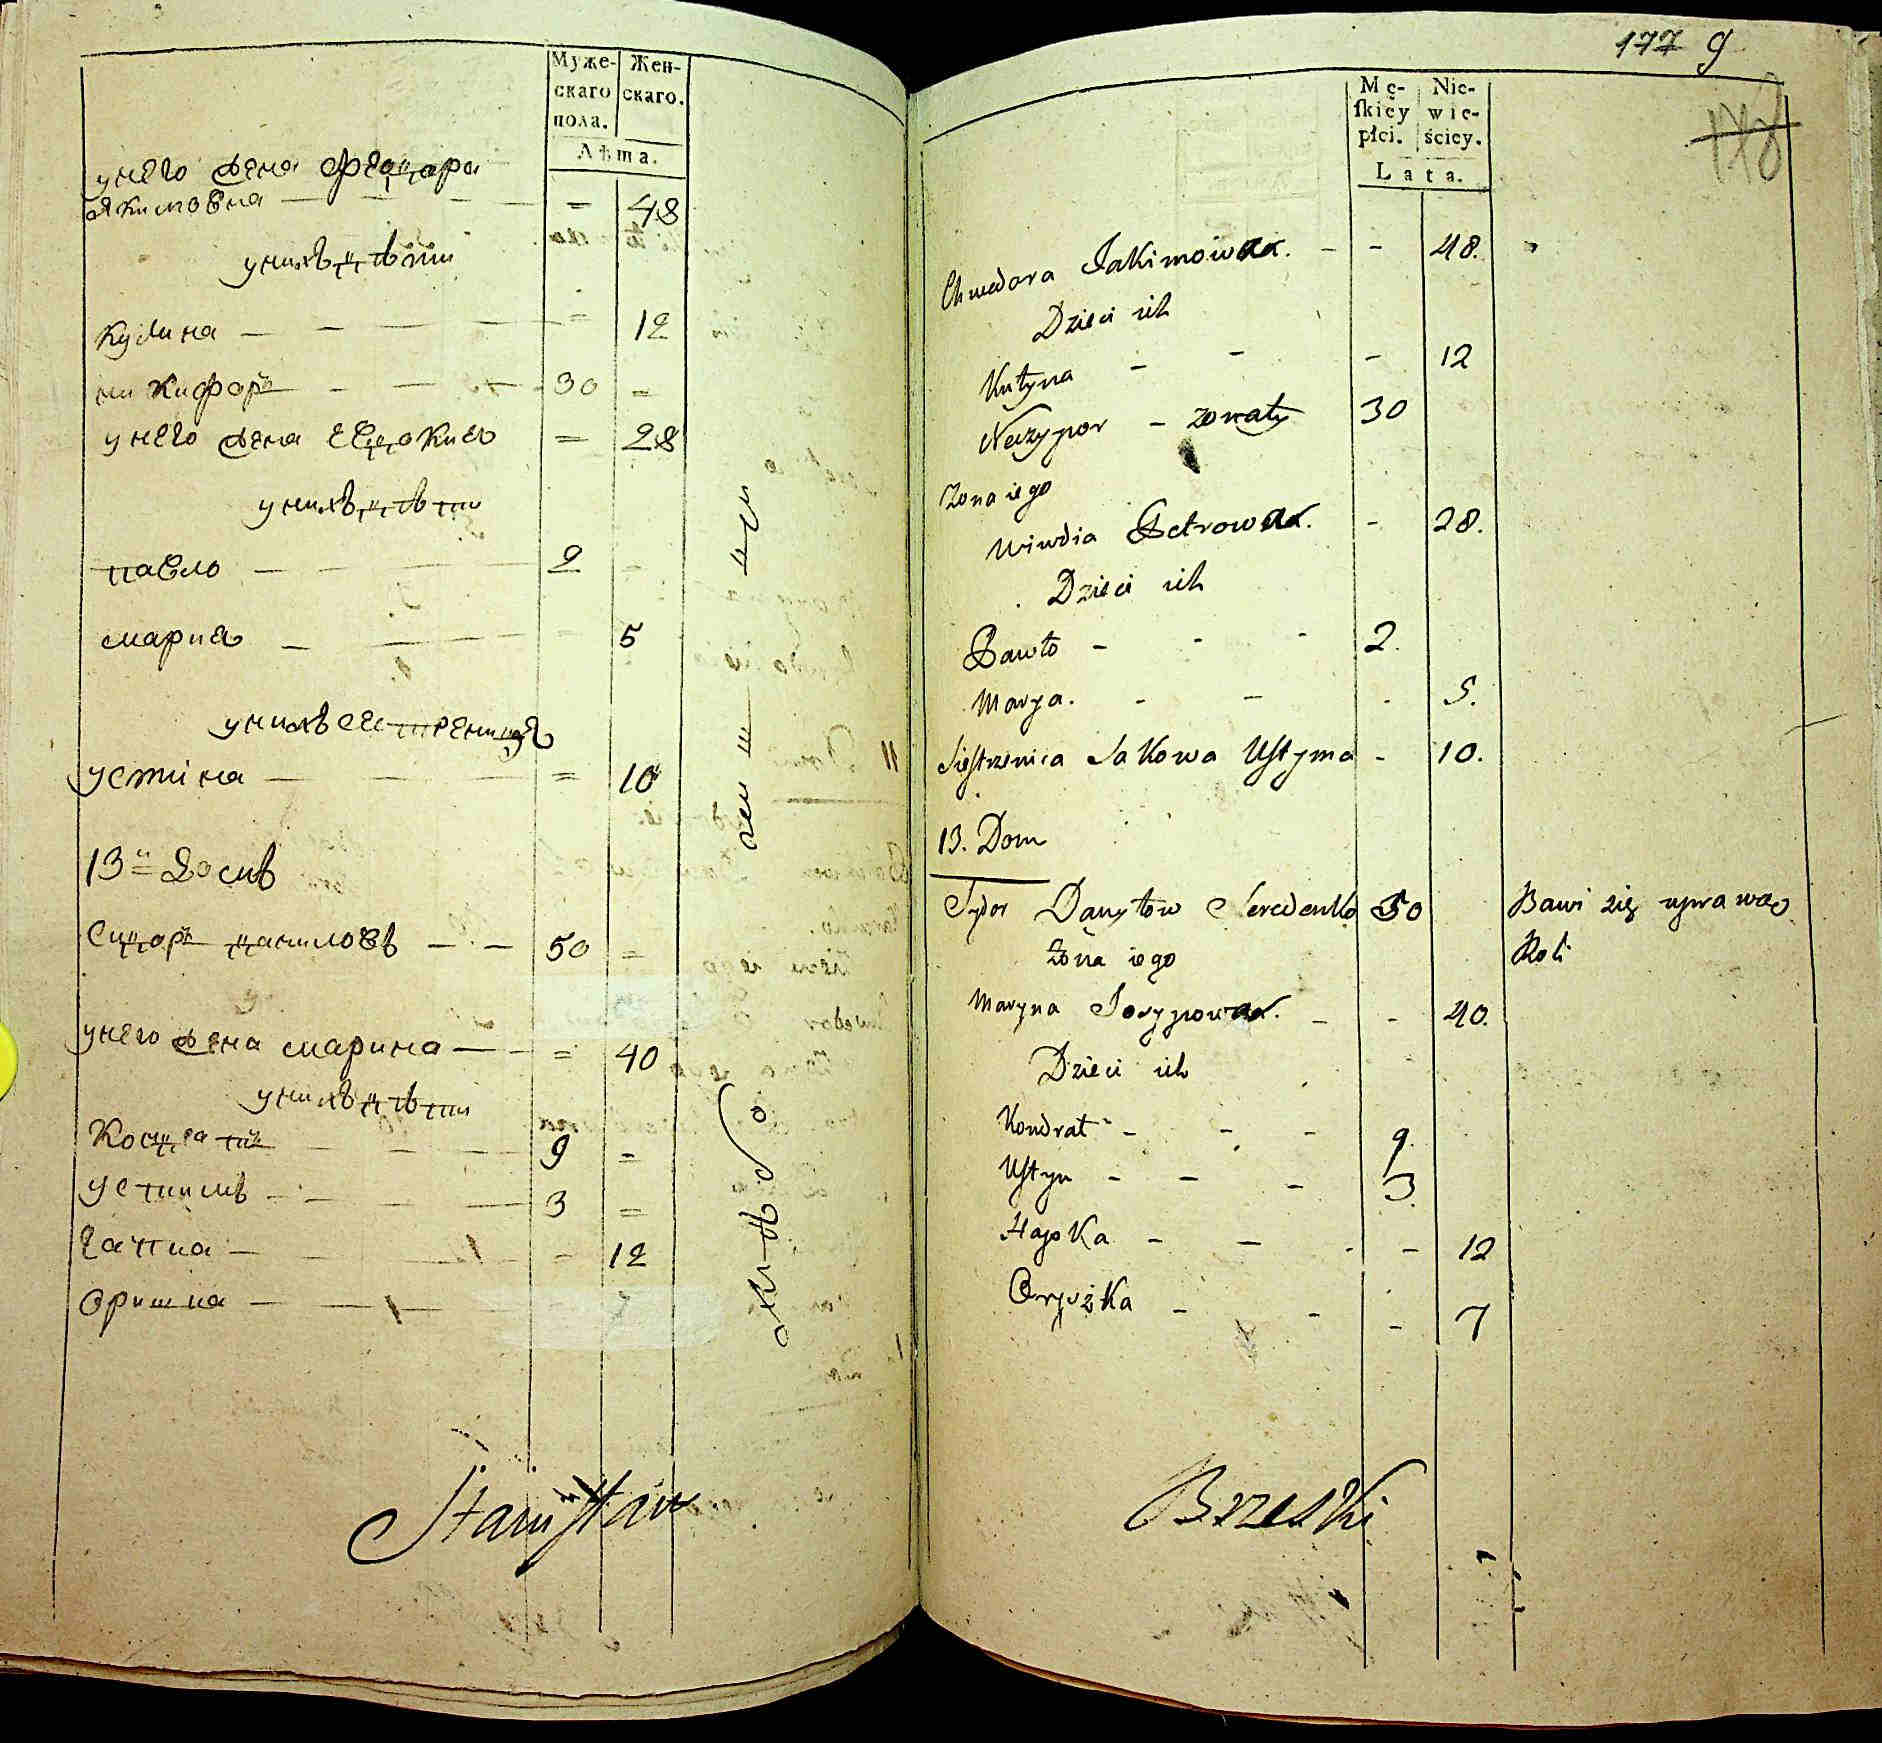 Муже- Жен-
скаго скаго.
пола.
Лѣта.
унего жена феѡдора
якимовна — — — = 48
унихъ дѣти
кулина — — — = 12
никифоръ — — — 30 =
унего жена евдокия = 28
унихъ дѣти
павло — — — 2 -
мария — — — = 5
унихъ сестреница
устина — — — = 10
13й домъ
Сидоръ даниловъ — — 50 =
унего жена марина — — = 40
унихъ дѣти
Кондратъ — — — 9 =
устимъ — — — 3 =
гапка — — — = 12
оришка — — — = 7
Stanisław
177 9
178
Mę- Nie-
skiey wie-
płci. ściey.
Lata.
Chwedora Jakimowna. - - 48.
Dzieci ich
Kulyna - - - 12
Neczypor - żonaty 30
Żona iego
Wiwdia Petrowna. - 28.
Dzieci ich
Pawło - - - 2.
Marya. - - - 5.
Siestrzenica Jakowa Ustyma - 10.
13. Dom
Sydor Danyłow Seredenko 50 Bawi się uprawao
Żona iego Roli
Maryna Josypowna. - - 40.
Dzieci ich
Kondrat - - - 9.
Ustyn - - - 3.
Hapka - - - - 12
Oryszka - - - 7
Brzeski